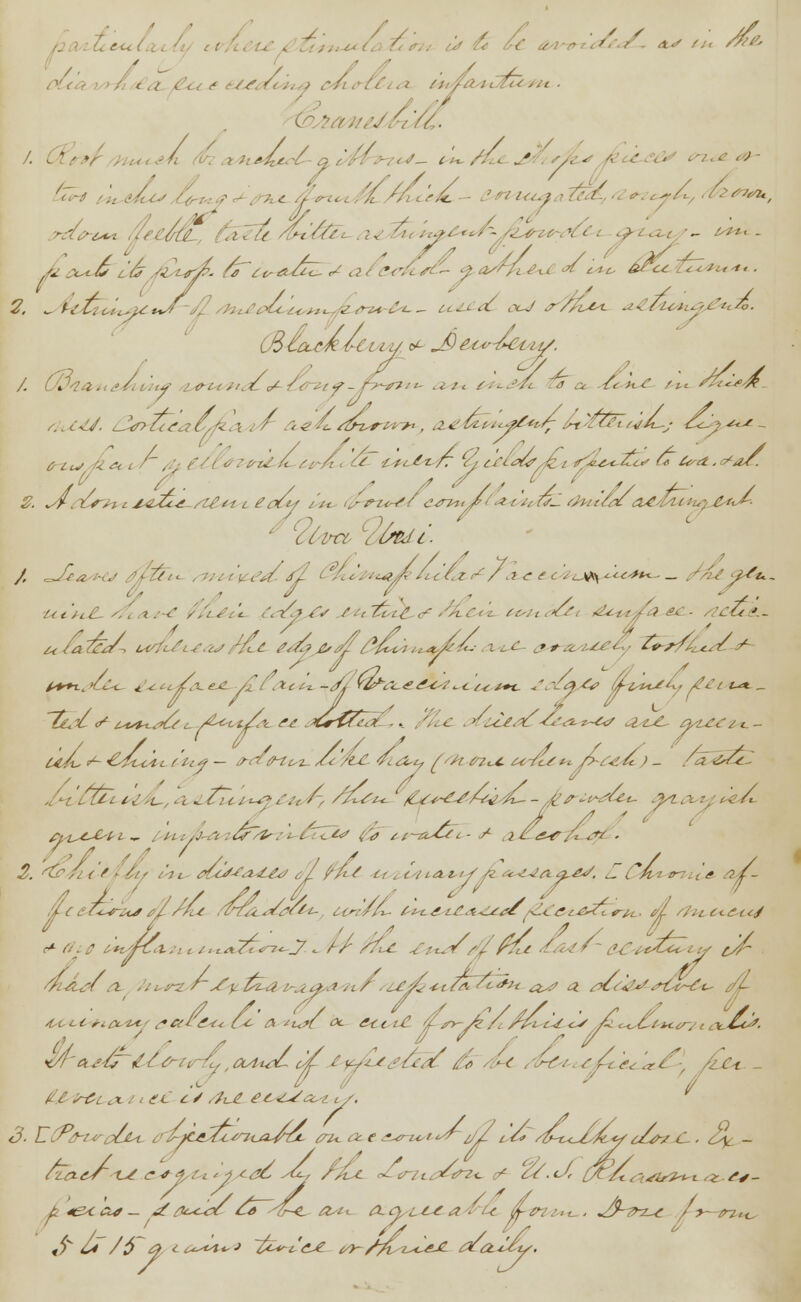 particularly where stimulation is to be avoided - as in the
diarrhœa succeeding cholera infantum.
Cranesbill.
1. Root much branched - gibbous - in the shops pieces one or
two inches long & one fourth thick - corrugated, rough, brown,
odour feeble, taste bitter astringent - powder gray - im-
parts its prop. to water & alcohol - gathered in Autumn.
2. Astringent of medium power - used as other astringents.
Blackberry & Dewberry.
1. Branching round & long - from an inch to a line in thick
ness. Cortical part ash brown, astringent, bitterish; ligne-
ous part yellowish white inert. Yields properties to wa. & al.
2. A domestic remedy in bowel complaints - mild astringent.
Uva Ursi.
1. Leaves often mixed of Chimaphila & Vaccinium - the gen-
uine have their edges entire & their under surface - retic-
ulated, whereas the edges of Chimaph. are coarsely toothed &
under surface plain - of Vaccinium edges finely serra-
ted & under surface dotted. The dried leaves are green-
ish & shining - odour like hay (none when fresh) - taste
bitterish, astringent, then sweetish - powder grayish
green - imparts virtues to water & alcohol.
2. Chiefly in diseases of the urinary passages. [Chronic af-
fections of the bladder, with increased secretion of mucus
& no inflammation.] At the end of the last century it
had a most extravagant reputation as a dissolver of
urinary calculi and a cure for phthisis pulmonalis.
It acts slowly, and if expected to be beneficial, per-
severance is necessary.
3. [Powder objectionable on account of its bulky dose. Ex-
tract recognized by the London & U.S. Pharmaco-
pœias - said to be an agreeable form. Dose from
5 to 15 grains twice or thrice daily.